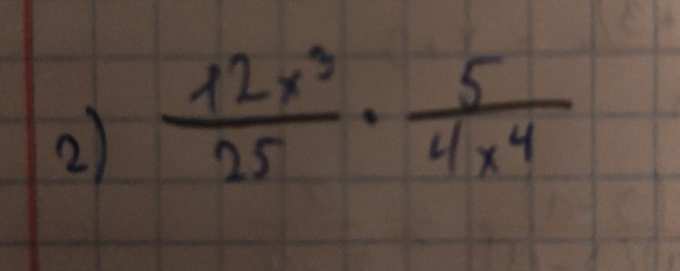 2) \frac{12x^3}{25} \cdot \frac{5}{4x^4}